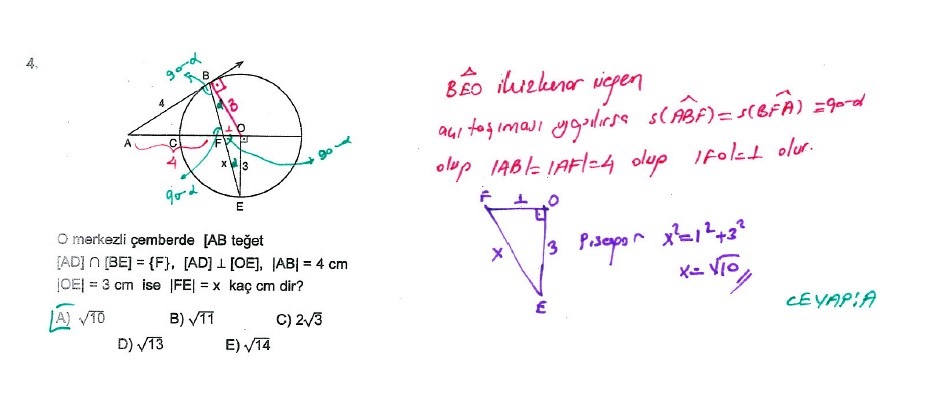 4.
90-α
B
4
3
α
1
O
A
C
F
4
x
α
3
90-α
90-α
E
O merkezli çemberde [AB teğet
[AD] ∩ [BE] = {F}, [AD] ⊥ [OE], |AB| = 4 cm
|OE| = 3 cm ise |FE| = x kaç cm dir?
A) √10 B) √11 C) 2√3
D) √13 E) √14
BEO ikizkenar üçgen
açı taşıması yapılırsa s(ABF) = s(BFA) = 90-α
olup |AB| = |AF| = 4 olup |FO| = 1 olur.
F 1 O
x 3
E
Pisagor x² = 1² + 3²
x = √10
CEVAP: A